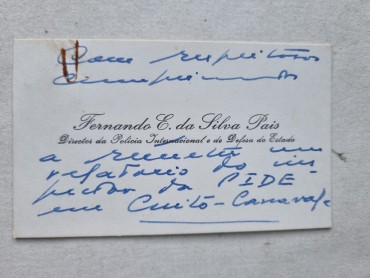 Com respeitosos
cumprimentos
Fernando E. da Silva Pais
Director da Polícia Internacional e de Defesa do Estado
a remeter um
relatorio do ins
pector da PIDE
em Cuito-Canavale